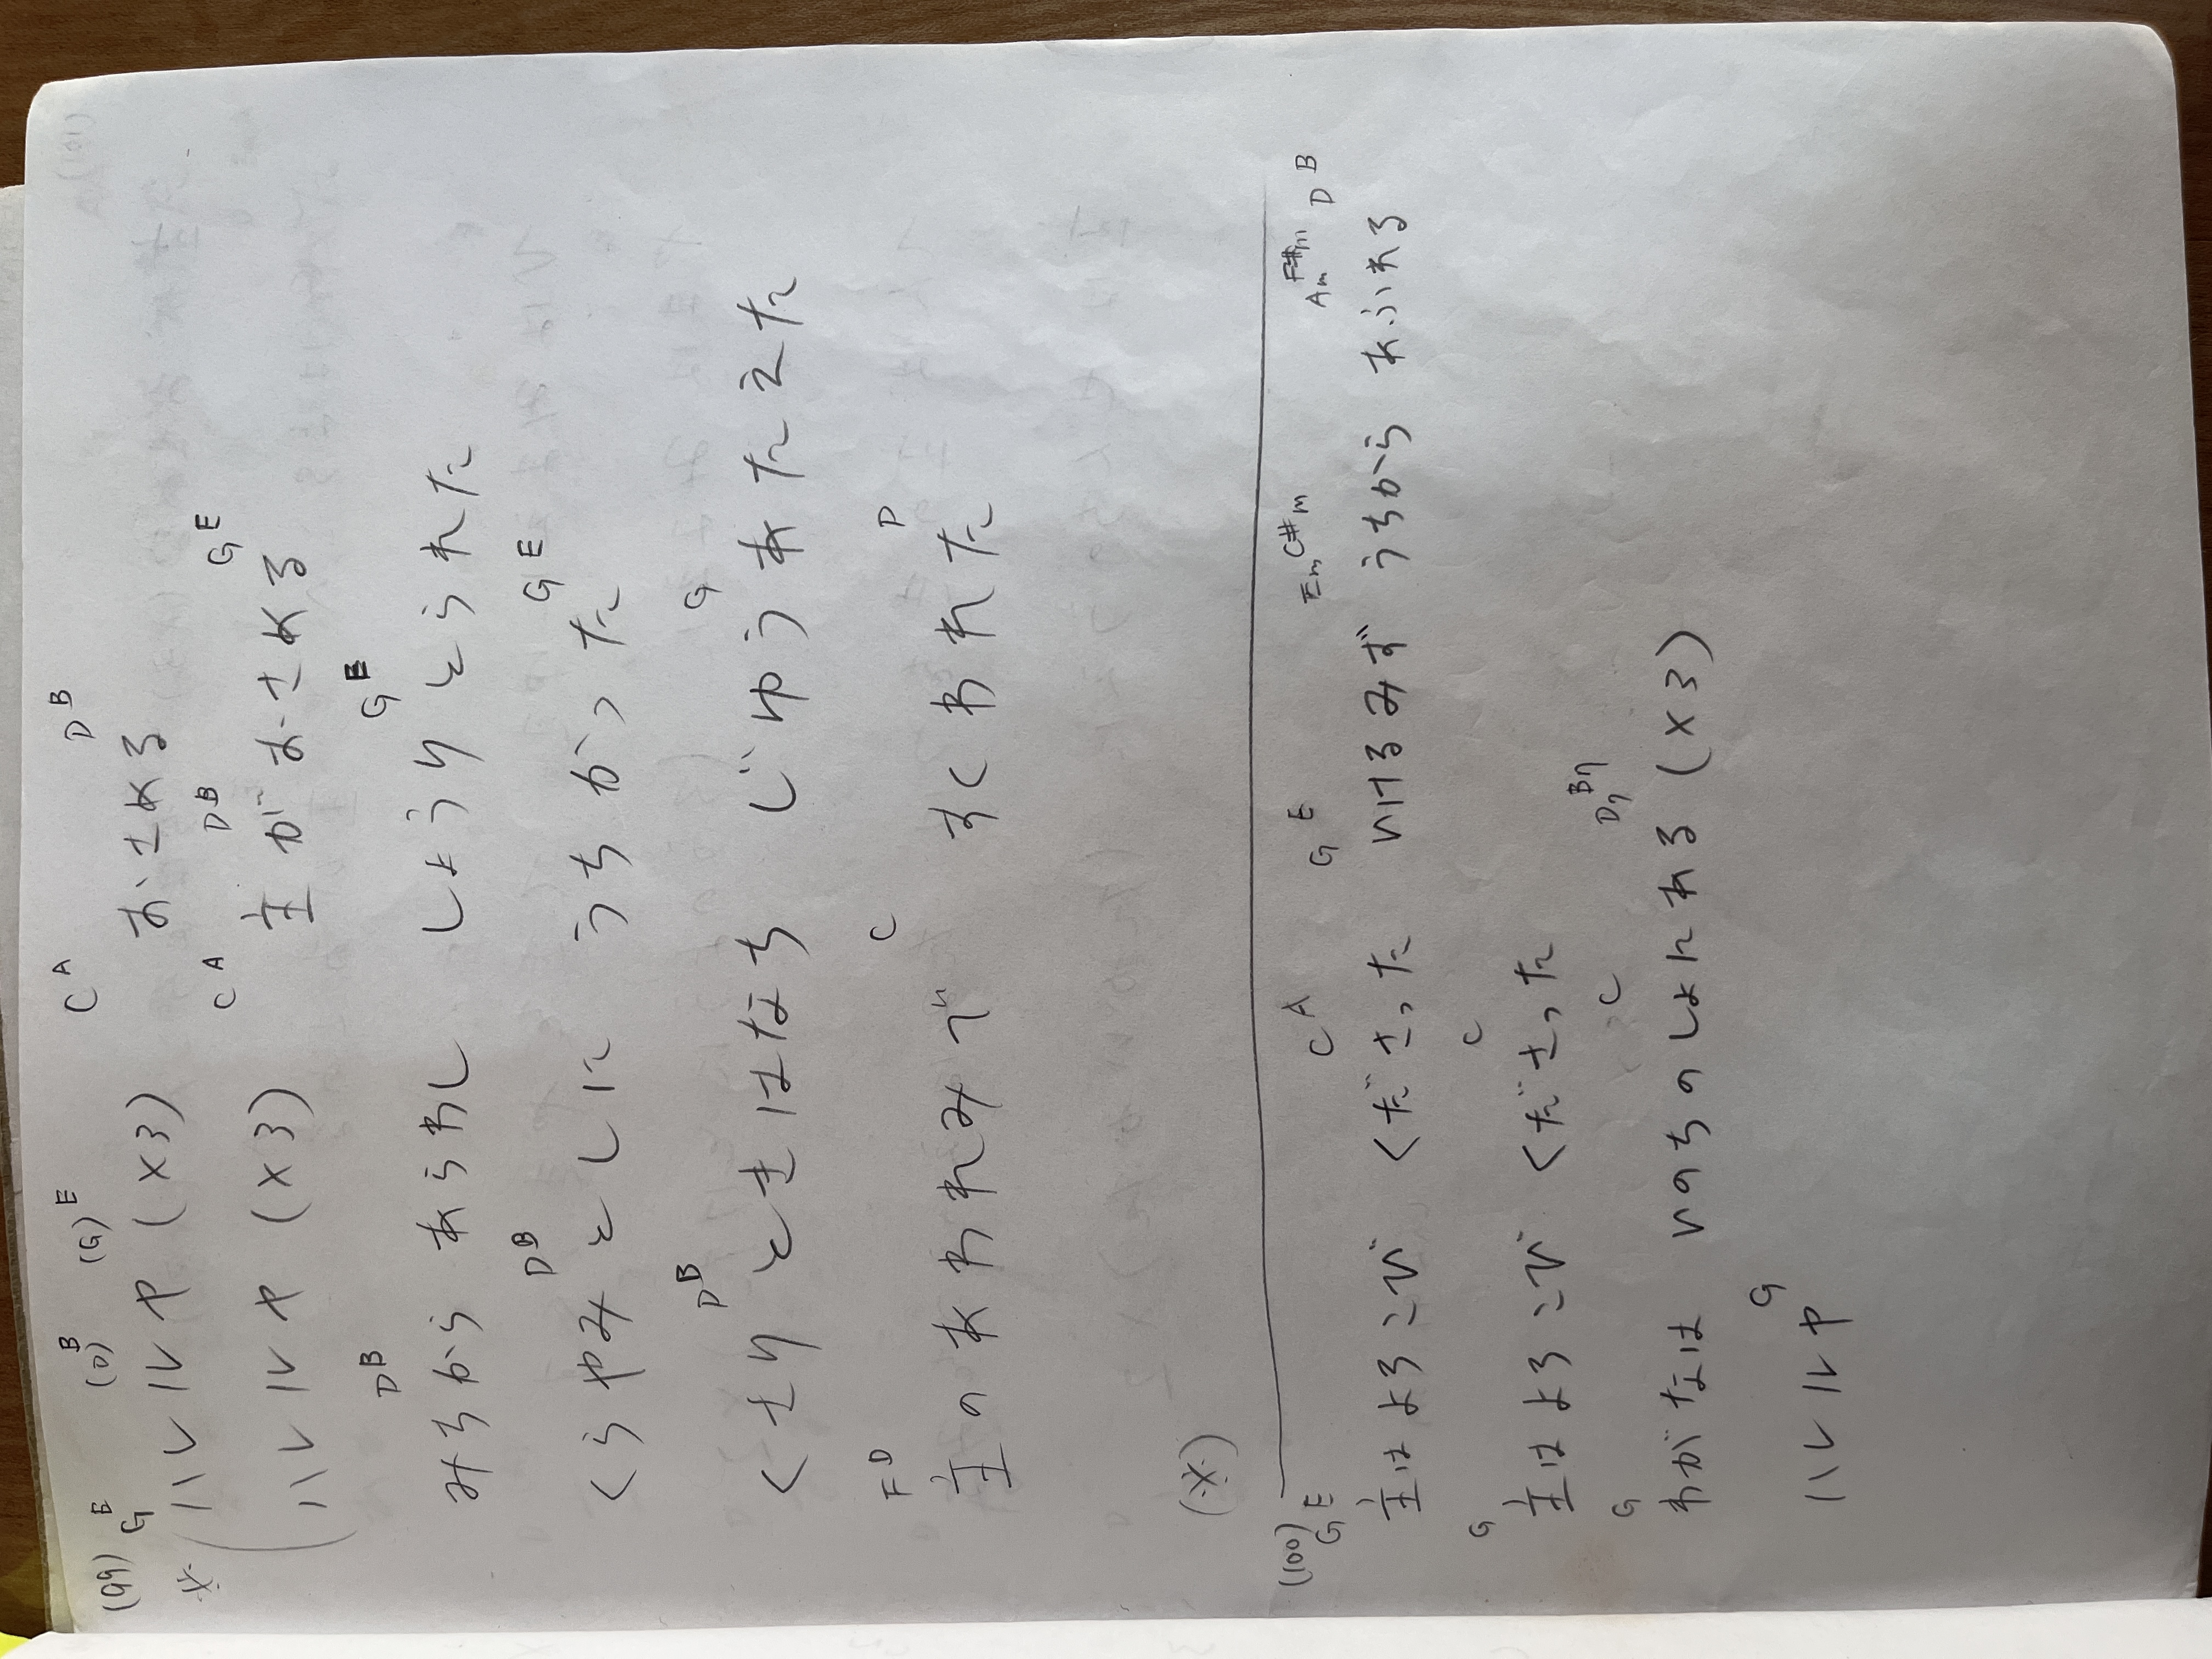 (99) G E (D) B (G) E C A D B
※ ハレルヤ (×3) おさめる
C A D B G E
ハレルヤ (×3) 主がおさめる
D B G E
みちから あらわし しょうりとられた
D B G E
くらやみとしに うちかった
D B G
くさりときはなち じゆうあたえた
F D C D
主のあわれみで すくわれた
(※)
(100) G E C A G E Em C#m Am F#m D B
主はよろこび くださった いけるみず うちから あふれる
G C
主はよろこび くださった
G C D7 B7
わがなは いのちのしょにある (×3)
G
ハレルヤ